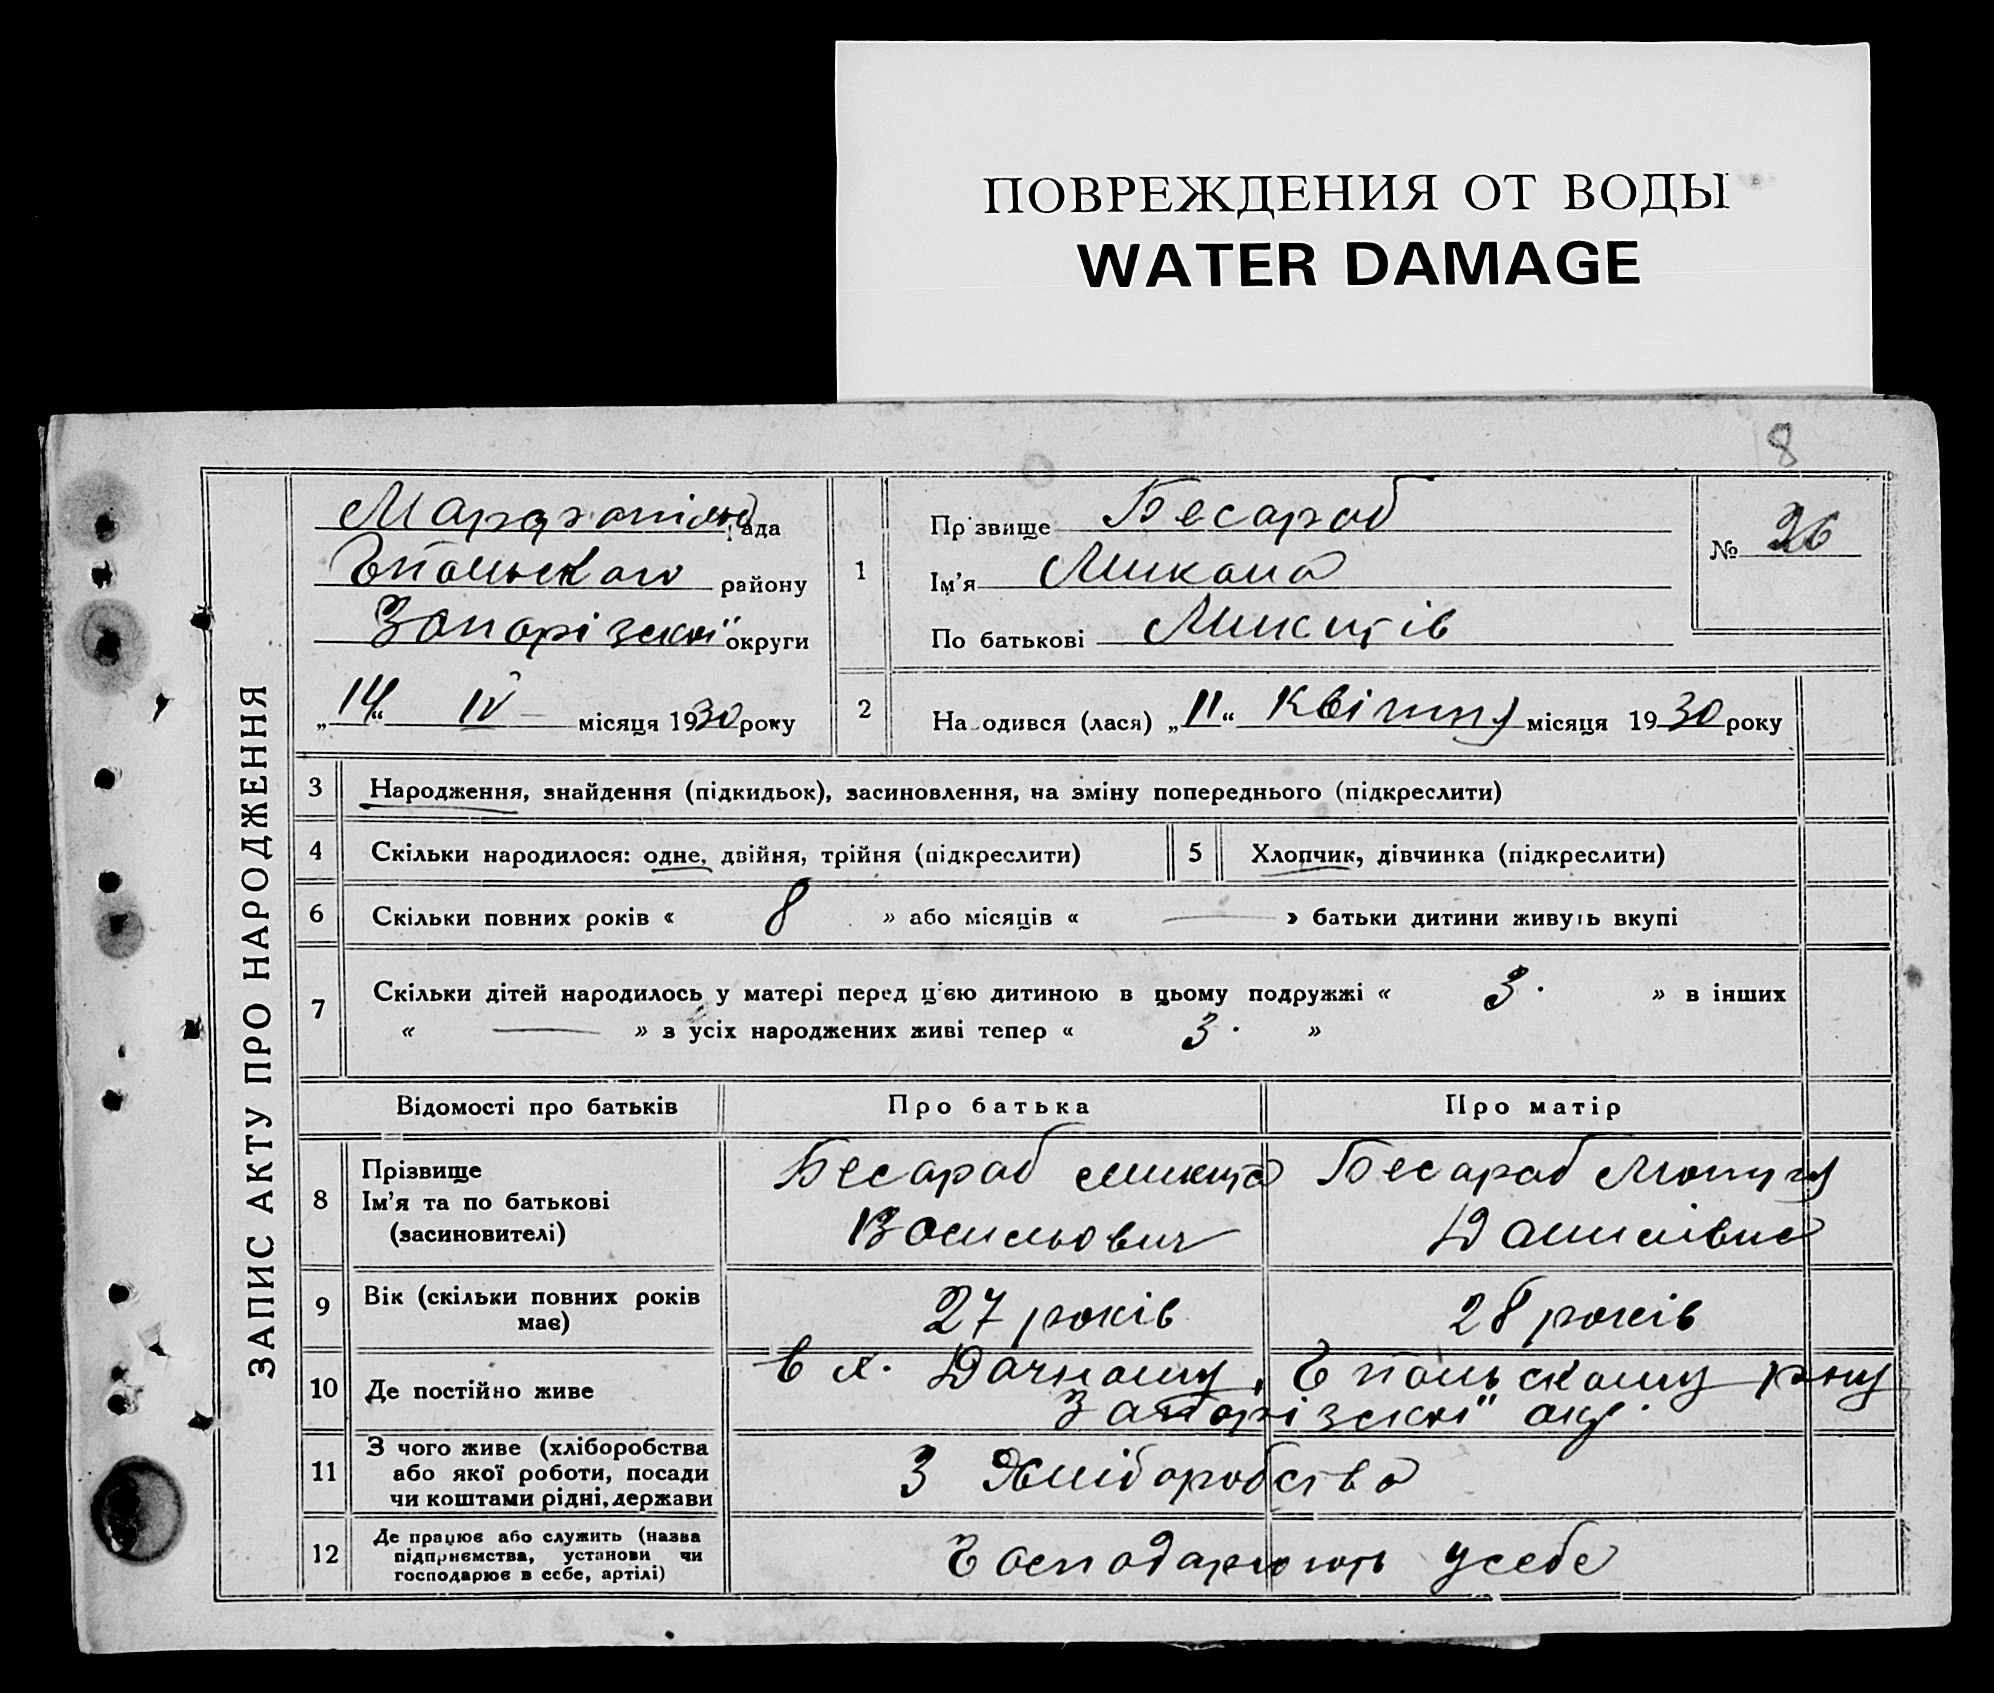 ПОВРЕЖДЕНИЯ ОТ ВОДЫ
WATER DAMAGE
8
ЗАПИС АКТУ ПРО НАРОДЖЕННЯ
рада
Гпольського району
Запорізської округи
„14“ IV місяця 1930 року
1
Прізвище Бесараб
Ім'я Микола
По батькові Микитів
№ 26
2
Народився (лася) „11“ Квітня місяця 1930 року
3 Народження, знайдення (підкидьок), засиновлення, на зміну попереднього (підкреслити)
4 Скільки народилося: одне, двійня, трійня (підкреслити)
5 Хлопчик, дівчинка (підкреслити)
6 Скільки повних років « 8 » або місяців « — » батьки дитини живуть вкупі
7 Скільки дітей народилось у матері перед ц'єю дитиною в цьому подружжі « 3. » в інших
« — » з усіх народжених живі тепер « 3. »
Відомості про батьків Про батька Про матір
8 Прізвище
Ім'я та по батькові
(засиновителі)
Бесараб Микита
Васильович
Бесараб
Данилівна
9 Вік (скільки повних років
має)
27 років 28 років
10 Де постійно живе
в х. Дачному, Гпольському р-ну
Запорізської окр.
11 З чого живе (хліборобства
або якої роботи, посади
чи коштами рідні, держави
З Хліборобства
12 Де працює або служить (назва
підприємства, установи чи
господарює в себе, артілі)
Господарюють у себе